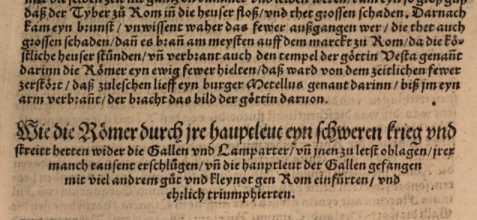 daß der Tyber zů Rom in die heuser floß/vnd thet grossen schaden. Darnach
kam eyn brunst / vnwissent waher das fewer außgangen wer / die thet auch
grossen schaden/dañ es bran am meysten auff dem marckt zu Rom/da die kö-
stliche heuser stůnden/vñ verbrant auch den tempel der göttin Vesta genañt
darinn die Römer eyn ewig fewer hielten/daß ward von dem zeitlichen fewer
zerstört / daß zuleschen lieff eyn burger Metellus genant darinn / biß jm eyn
arm verbrañt/ der bracht das bild der göttin daruon.
Wie die Römer durch jre hauptleut eyn schweren krieg vnd
streitt hetten wider die Gallen vnd Lamparter/vñ jnen zu letst oblagen/jrer
manch tausent erschlůgen/vñ die hauptleut der Gallen gefangen
mit viel andrem gůt vnd kleynot gen Rom einfürten/ vnd
ehrlich triumphierten.